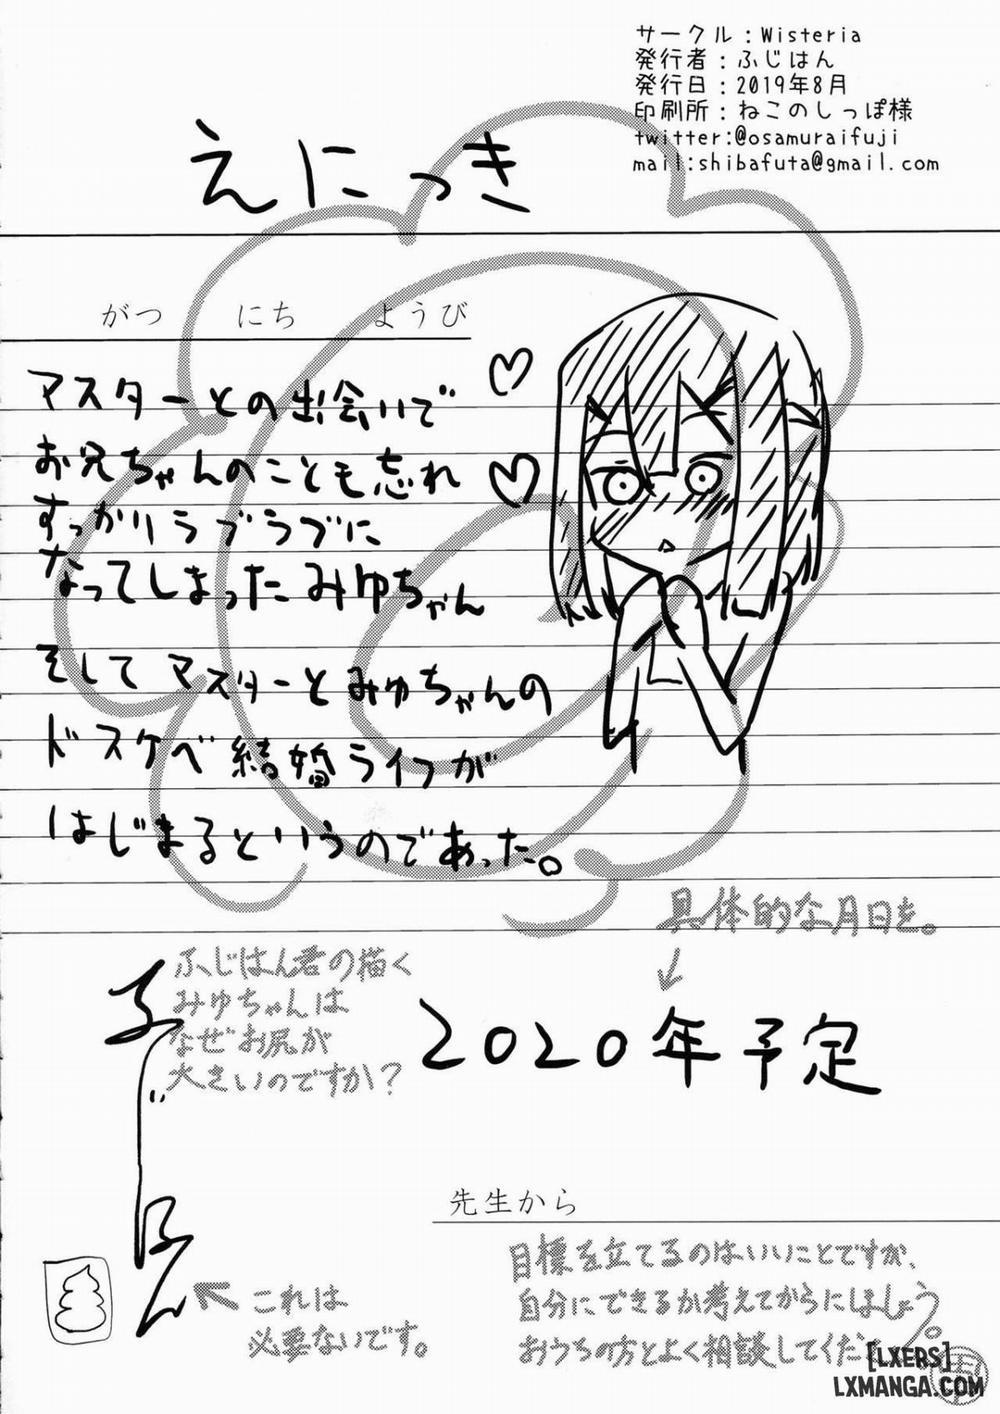 サークル：Wisteria
発行者：ふじはん
発行日：2019年8月
印刷所：ねこのしっぽ様
twitter:@osamuraifuji
mail:shibafuta@gmail.com
えにっき
がつ にち ようび
マスターとの出会いで
お兄ちゃんのことも忘れ
すっかりラブラブに
なってしまったみゆちゃん
そしてマスターとみゆちゃんの
ドスケベ結婚ライフが
はじまるというのであった。
具体的な月日を。
ふじはん君の描く
みゆちゃんは
なぜお尻が
大きいのですか？
2020年予定
ふじはん
先生から
目標を立てるのはいいことですが、
自分にできるか考えてからにしましょう。
おうちの方とよく相談してくだ
これは
必要ないです。
[LXERS]
LXMANGA.COM